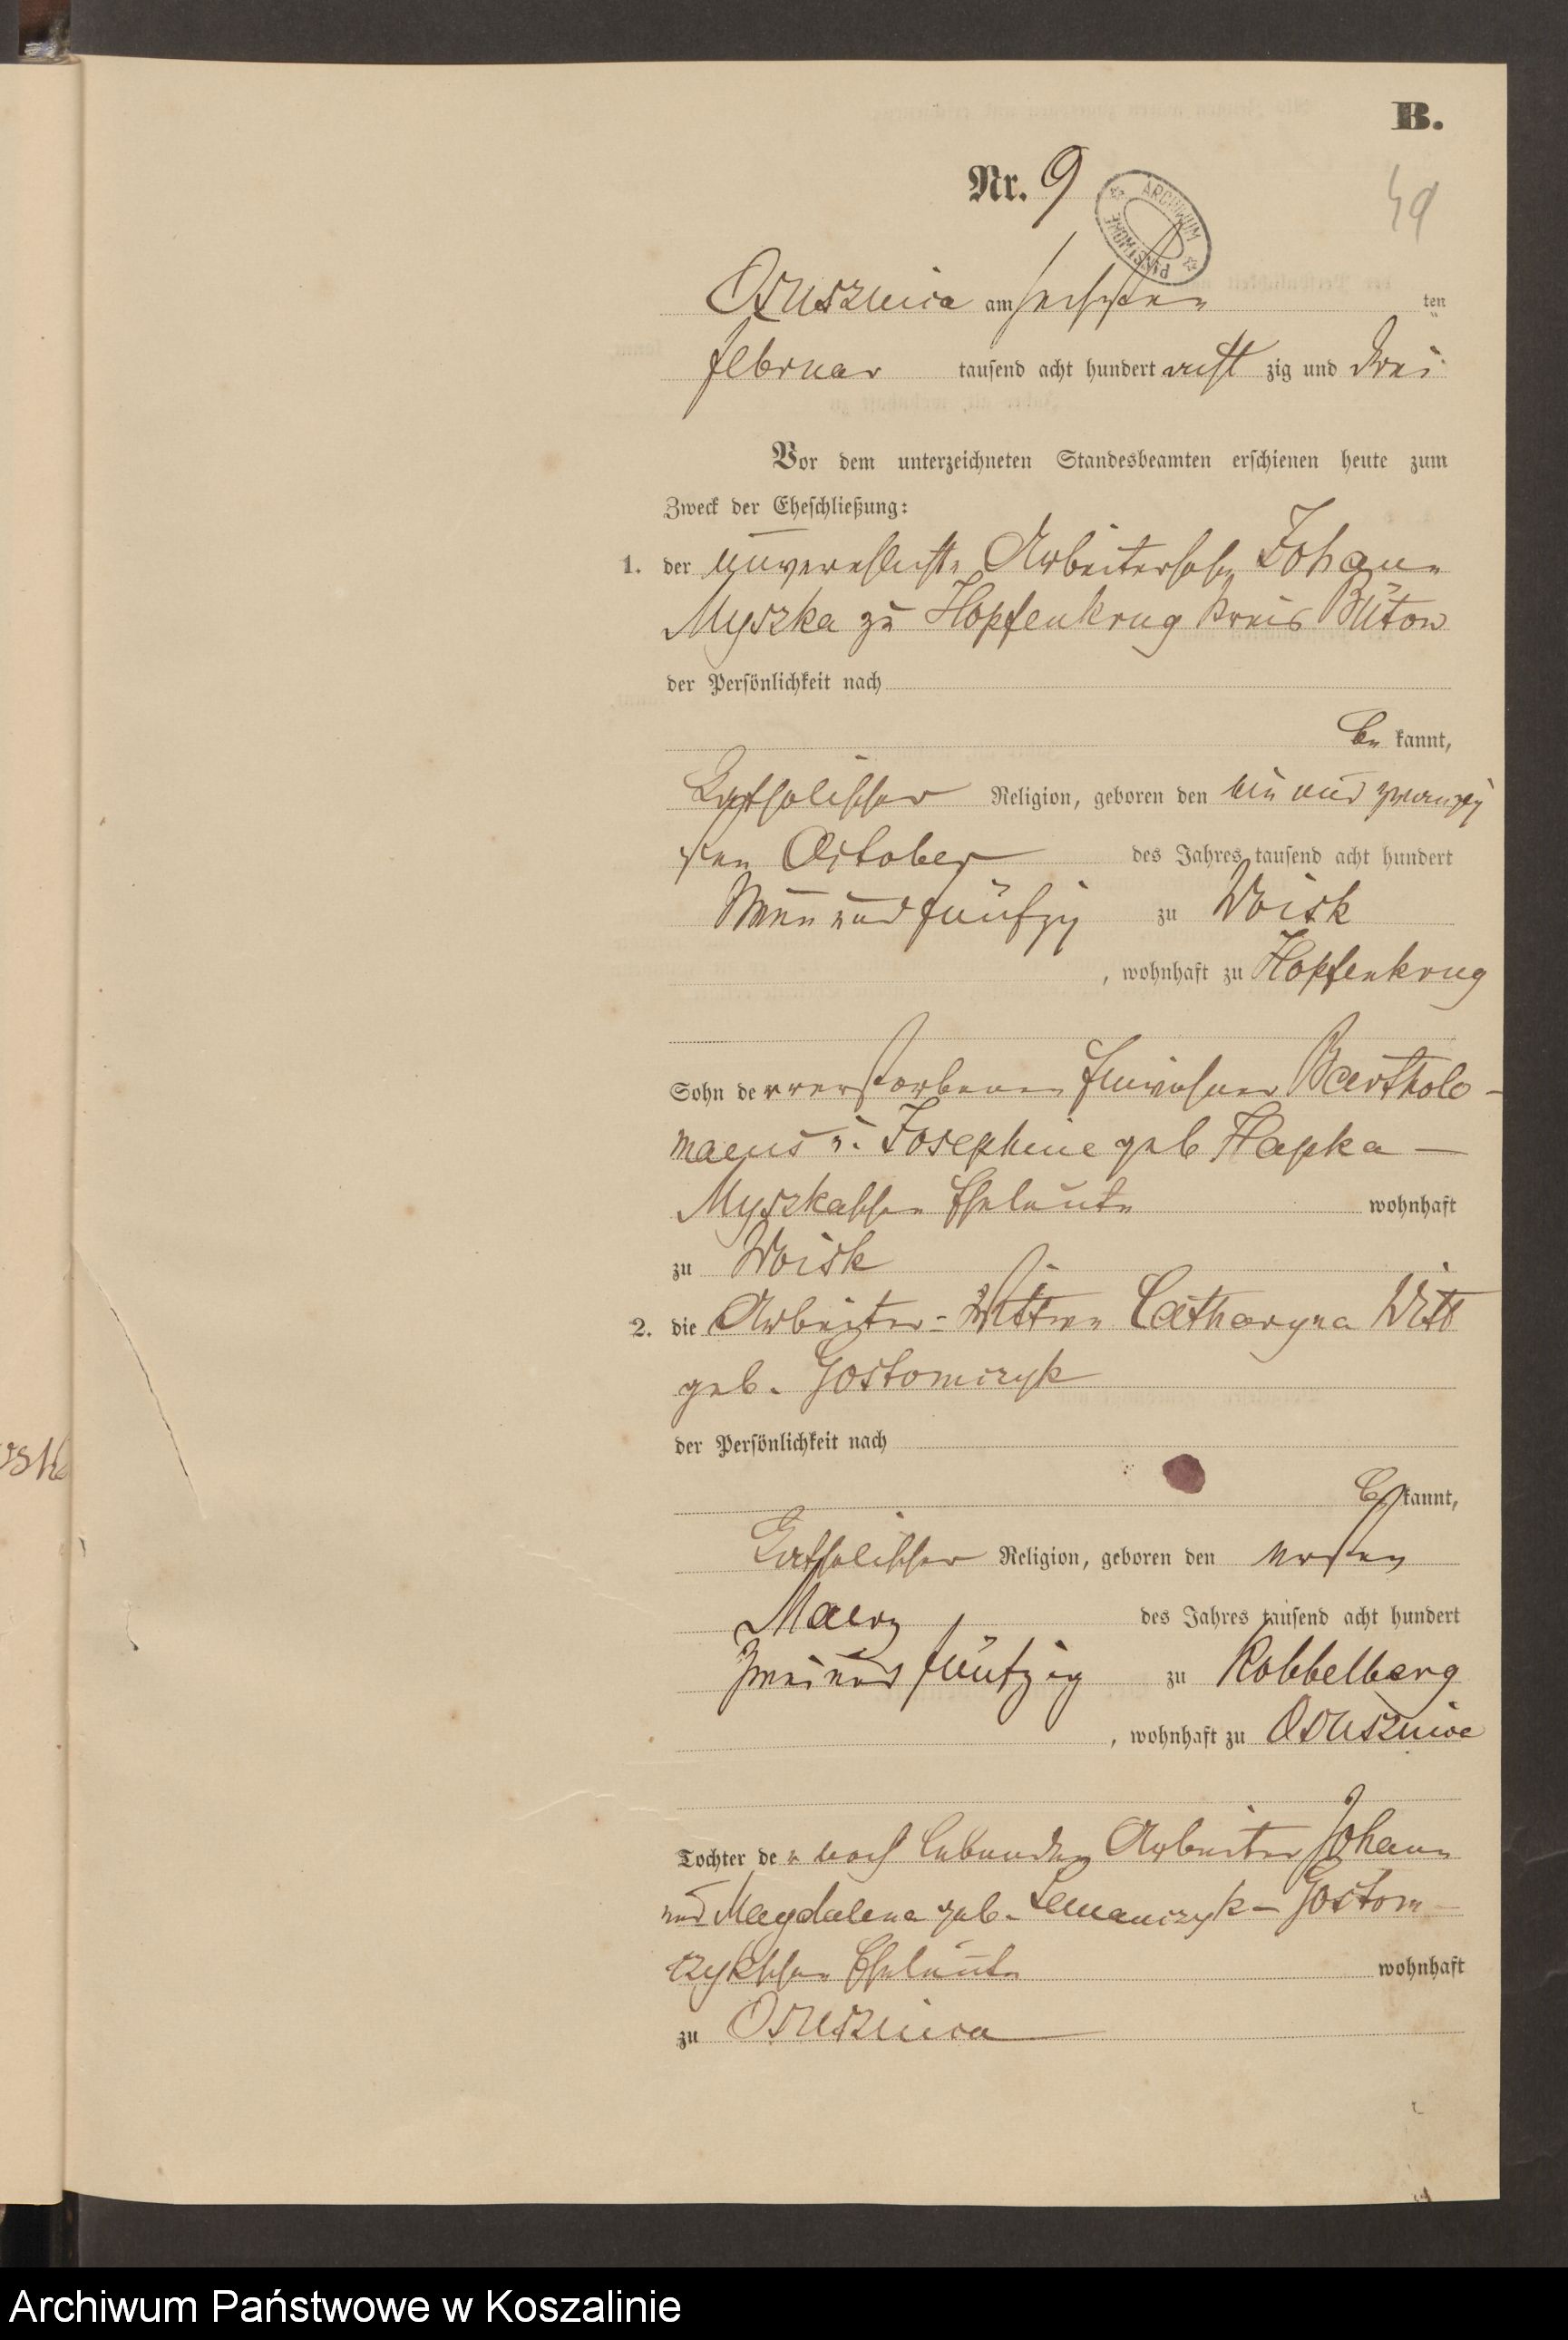 B.
Nr. 9
49
ARCHIWUM PAŃSTWOWE
Osusznica am sechsten ten
Februar tausend acht hundert acht zig und drei
Vor dem unterzeichneten Standesbeamten erschienen heute zum
Zweck der Eheschließung:
1. der unverehlichte Arbeitersohn Johann
Myszka zu Hopfenkrug Kreis Bütow
der Persönlichkeit nach
be kannt,
Katholischer Religion, geboren den ein und zwanzig
sten October des Jahres tausend acht hundert
Neun und fünfzig zu Woisk
, wohnhaft zu Hopfenkrug
Sohn der verstorbenen Einwohner Bartholo-
maeus u. Josephine geb Hapka —
Myszkaschen Eheleute wohnhaft
zu Woisk
2. die Arbeiter-Wittwe Catharyna Witt
geb. Gostomczyk
der Persönlichkeit nach
be kannt,
Katholischer Religion, geboren den ersten
Maerz des Jahres tausend acht hundert
zwei und fünfzig zu Robbelberg
, wohnhaft zu Osusznica
Tochter der noch lebenden Arbeiter Johann
und Magdalena geb. Lemanczyk - Gostom-
czykschen Eheleute wohnhaft
zu Osusznica
Archiwum Państwowe w Koszalinie